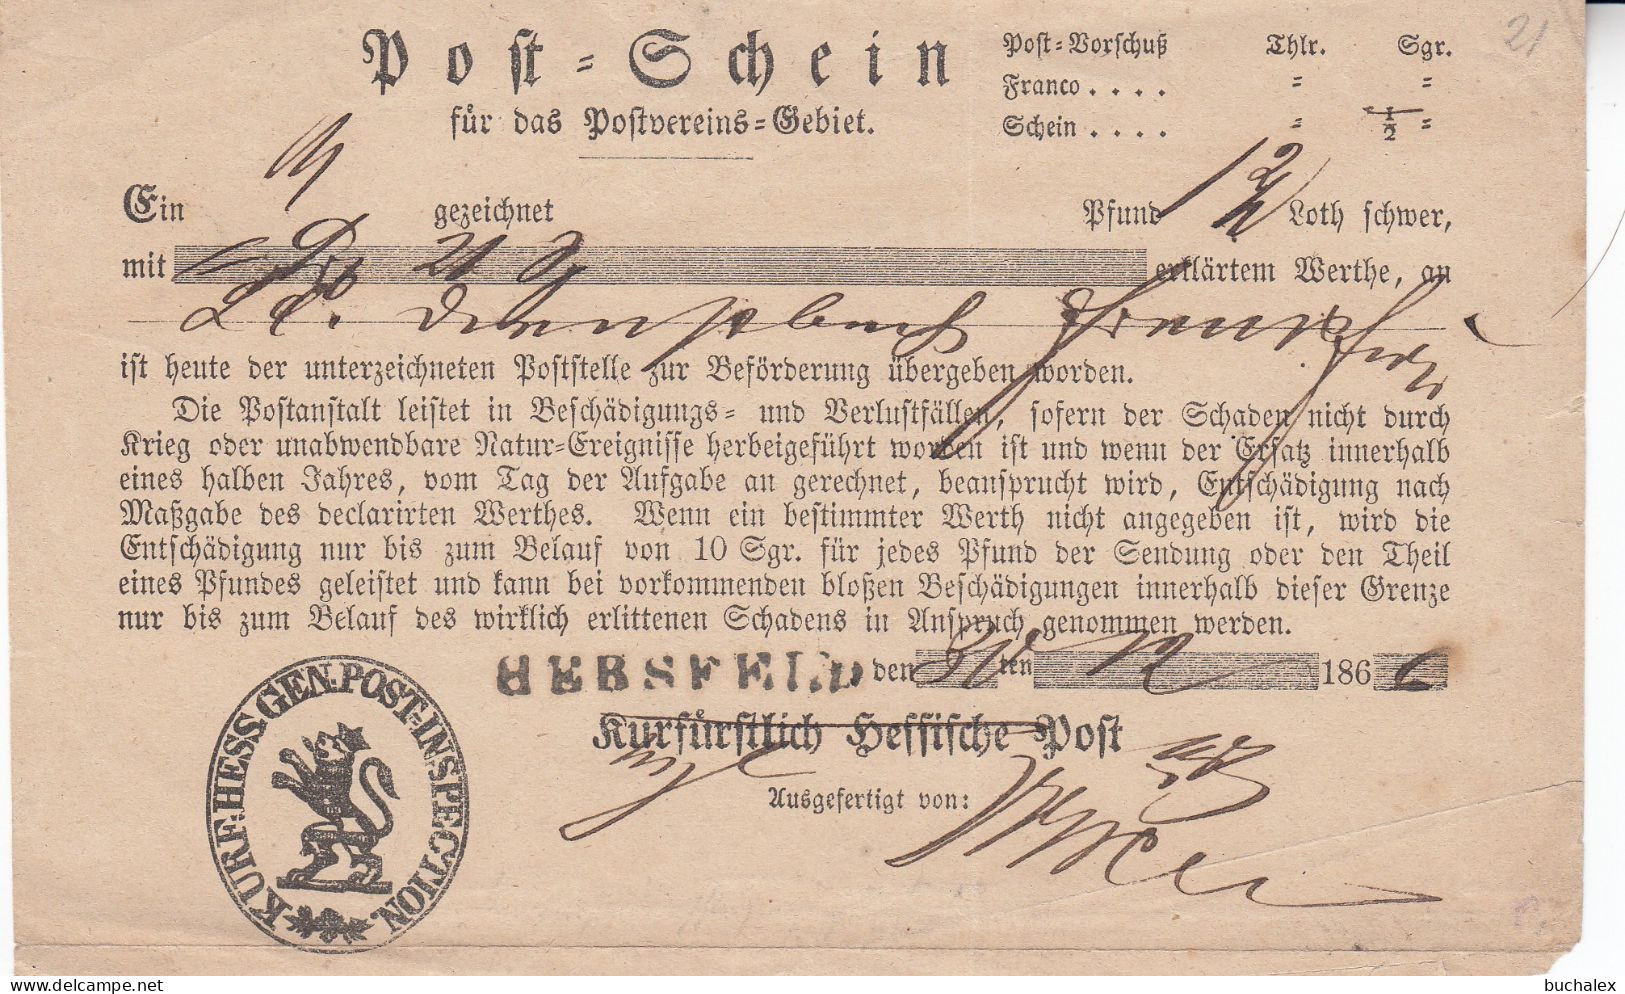 21
Post-Schein
für das Postvereins-Gebiet.
Post-Vorschuß Thlr. Sgr.
Franco . . . . " "
Schein . . . . " 1/2 "
Ein gezeichnet Pfund 1 2/ Loth schwer,
mit 21 erklärtem Werthe, an
ist heute der unterzeichneten Poststelle zur Beförderung übergeben worden.
Die Postanstalt leistet in Beschädigungs- und Verlustfällen, sofern der Schaden nicht durch
Krieg oder unabwendbare Natur-Ereignisse herbeigeführt worden ist und wenn der Ersatz innerhalb
eines halben Jahres, vom Tag der Aufgabe an gerechnet, beansprucht wird, Entschädigung nach
Maßgabe des declarirten Werthes. Wenn ein bestimmter Werth nicht angegeben ist, wird die
Entschädigung nur bis zum Belauf von 10 Sgr. für jedes Pfund der Sendung oder den Theil
eines Pfundes geleistet und kann bei vorkommenden bloßen Beschädigungen innerhalb dieser Grenze
nur bis zum Belauf des wirklich erlittenen Schadens in Anspruch genommen werden.
HERSFELD den ten 12 1866
Kurfürstlich Hessische Post
Ausgefertigt von:
KURF. HESS. GEN. POST-INSPECTION.
buchalex